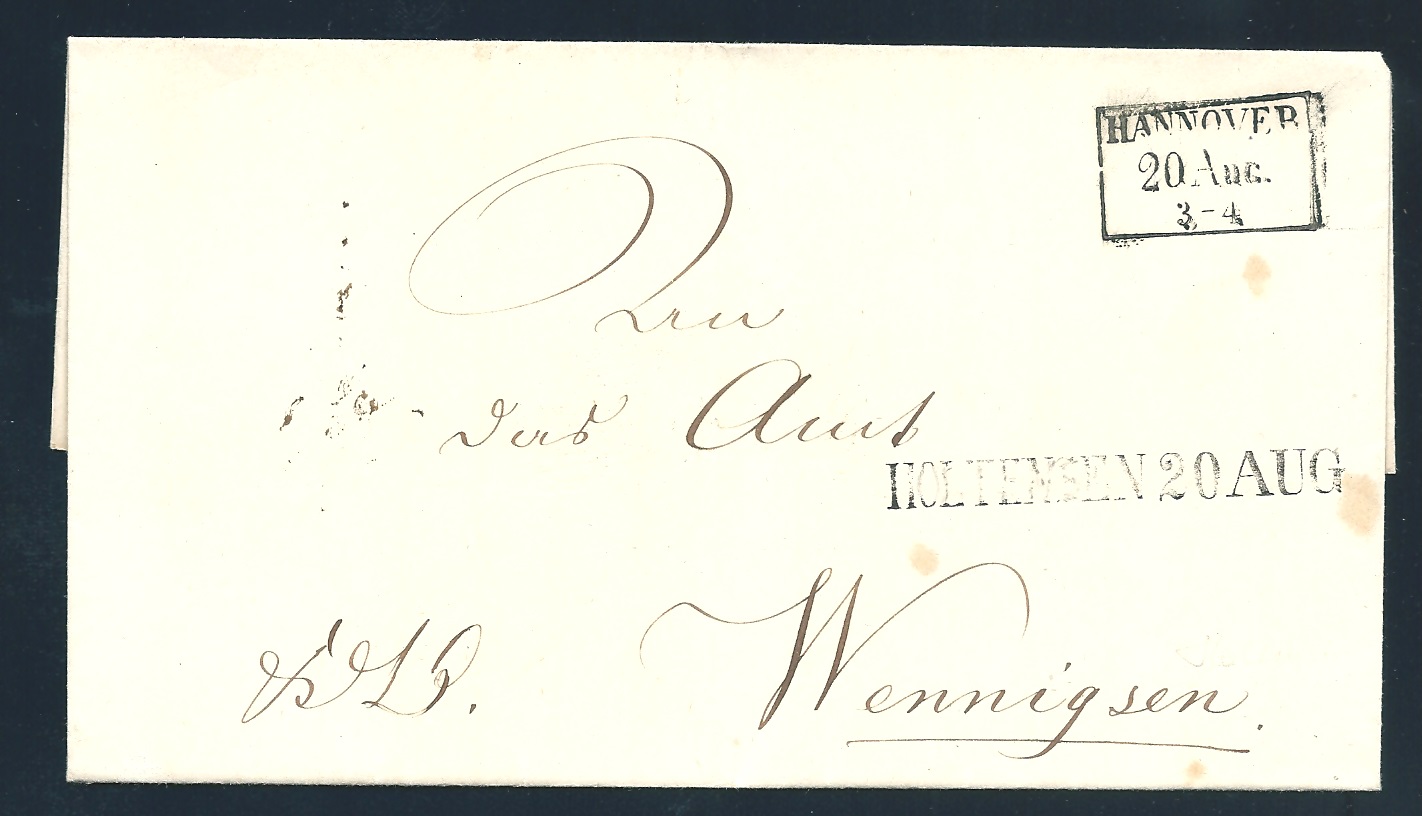 HANNOVER
20 Aug.
3-4
An
das Amt
HOLTENSEN 20 AUG
Wennigsen.